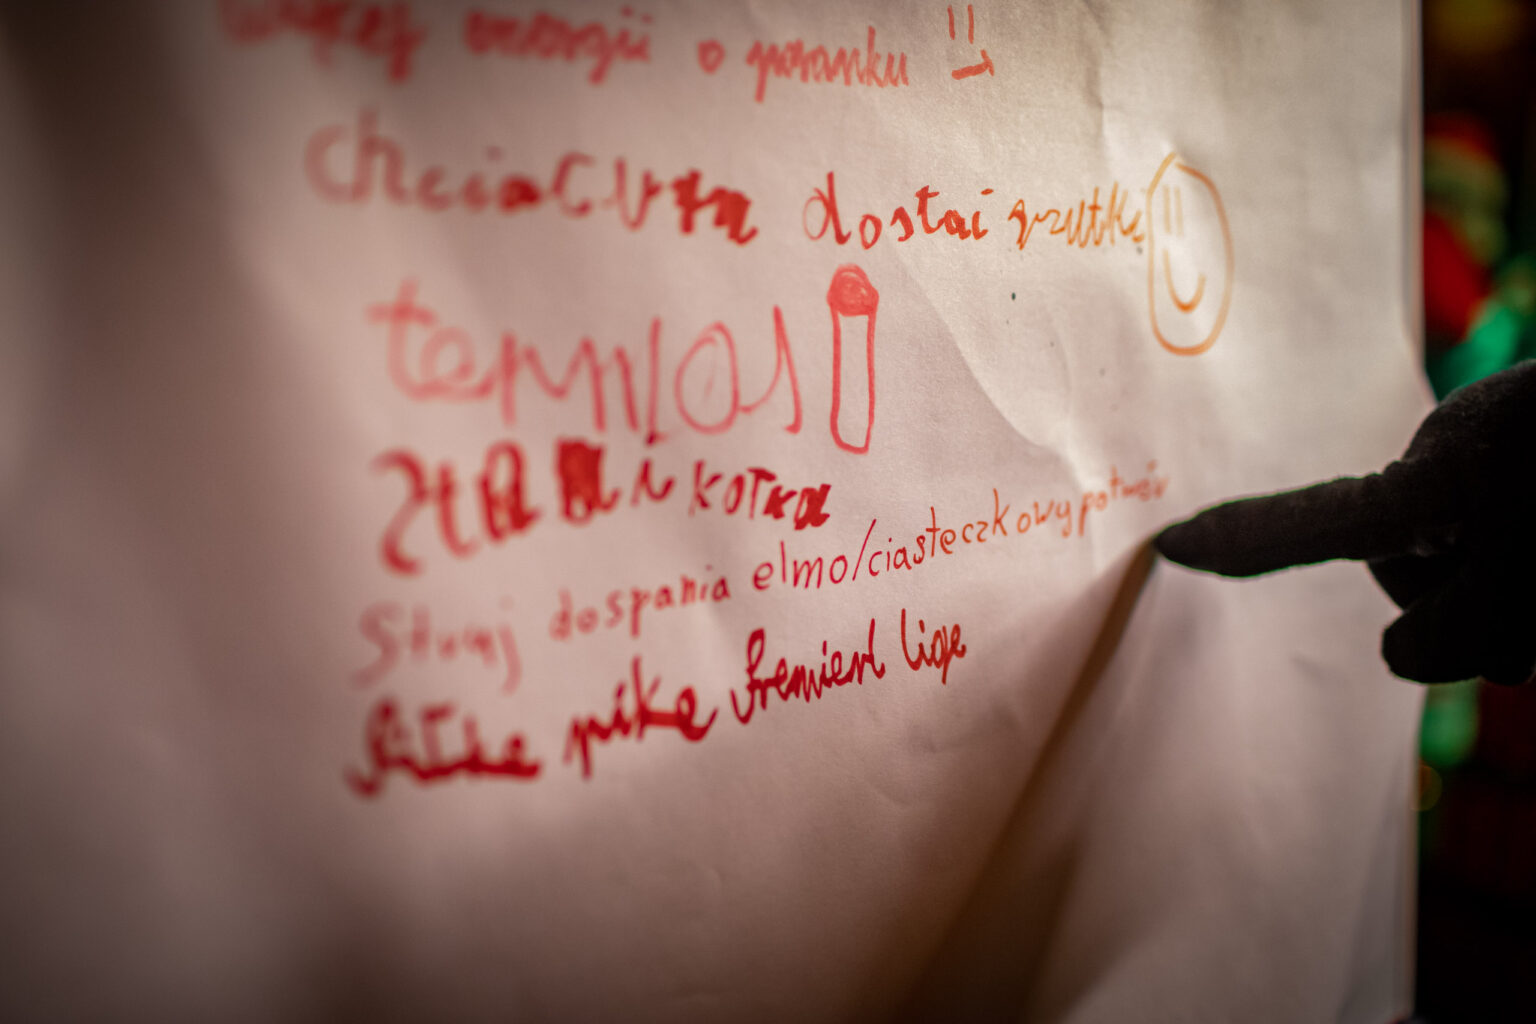 więcej energii o poranku
dostać
termos
i kotka
Strój do spania elmo/ciasteczkowy potwór
piłkę Premier lige